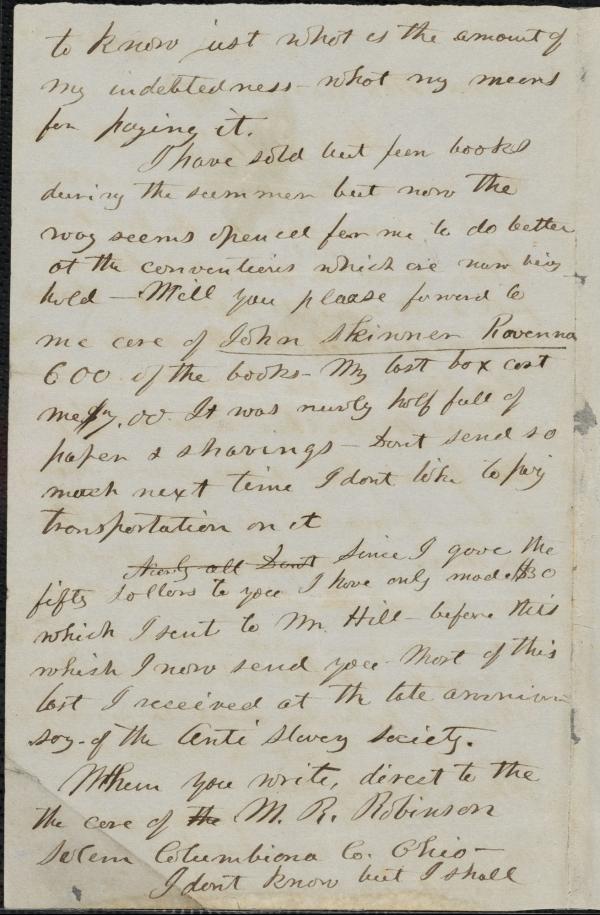 to know just what is the amount of
my indebtedness - what my means
for paying it.
I have sold but few books
during the summer but now the
way seems opened for me to do better
at the conventions which are now being
held - Will you please forward to
me care of John Skinner Ravenna
600 of the books - My last box cost
me $7.00. It was nearly half full of
paper & shavings - Dont send so
much next time I dont like to pay
transportation on it
Nearly all Dont Since I gave the
fifty dollars to you I have only made $30
which I sent to Mr. Hill - before this
which I now send you - Most of this
last I received at the late anniver
say - of the Anti Slavery Society.
When you write, direct to the
the care of the M. R. Robinson
Salem Columbiana Co. Ohio -
I dont know but I shall